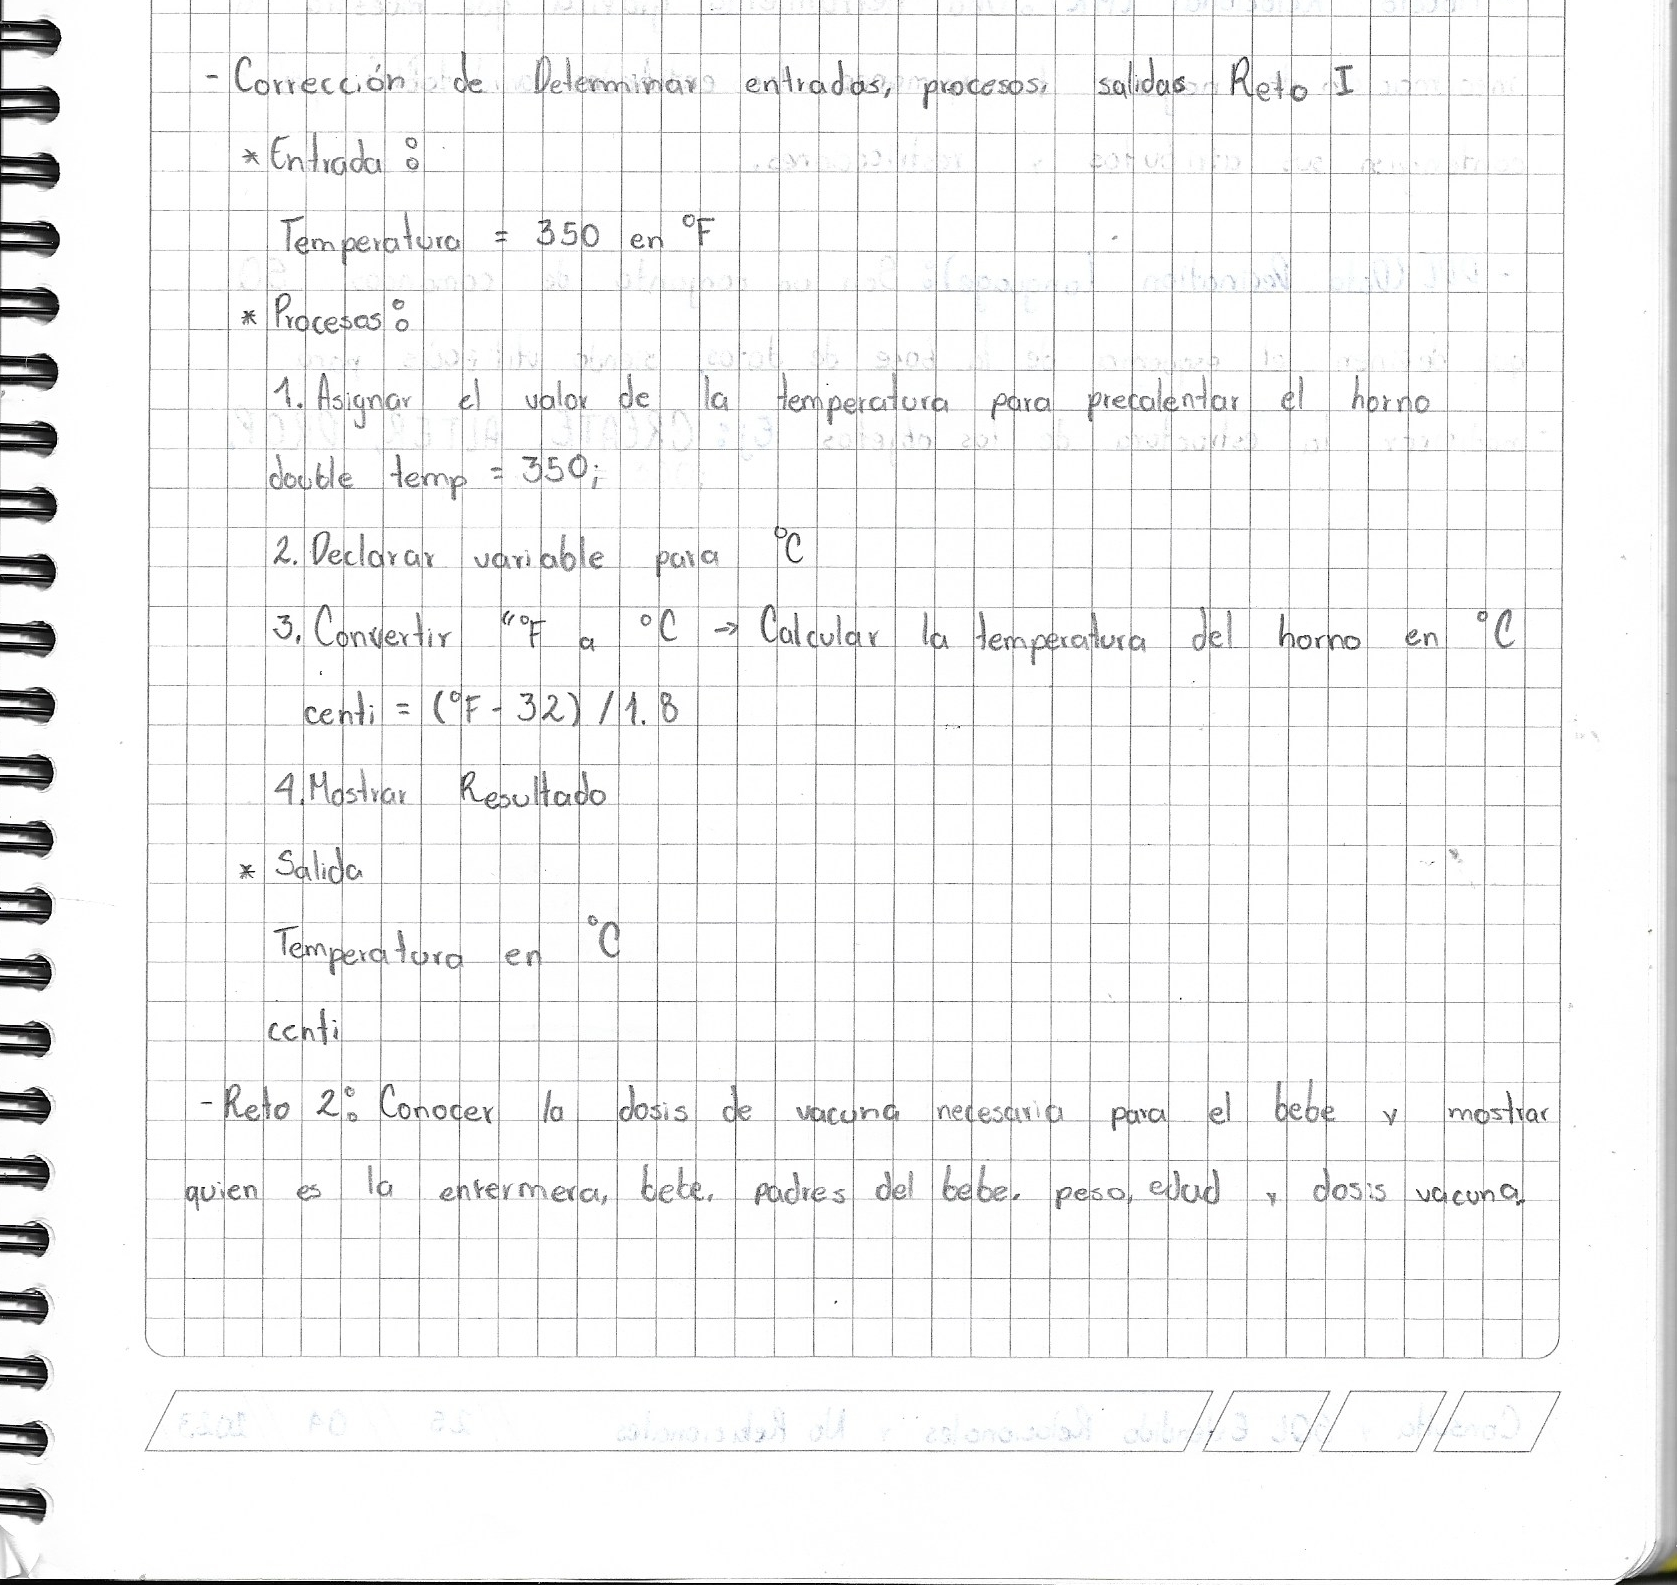 - Corrección de Determinar entradas, procesos, salidas Reto I
* Entrada:
Temperatura = 350 en °F
* Procesos:
1. Asignar el valor de la temperatura para precalentar el horno
double temp = 350;
2. Declarar variable para °C
3. Convertir "°F a °C → Calcular la temperatura del horno en °C
centi = (°F - 32) / 1.8
4. Mostrar Resultado
* Salida
Temperatura en °C
centi
- Reto 2: Conocer la dosis de vacuna necesaria para el bebe y mostrar
quien es la enfermera, bebe, padres del bebe, peso, edad y dosis vacuna.